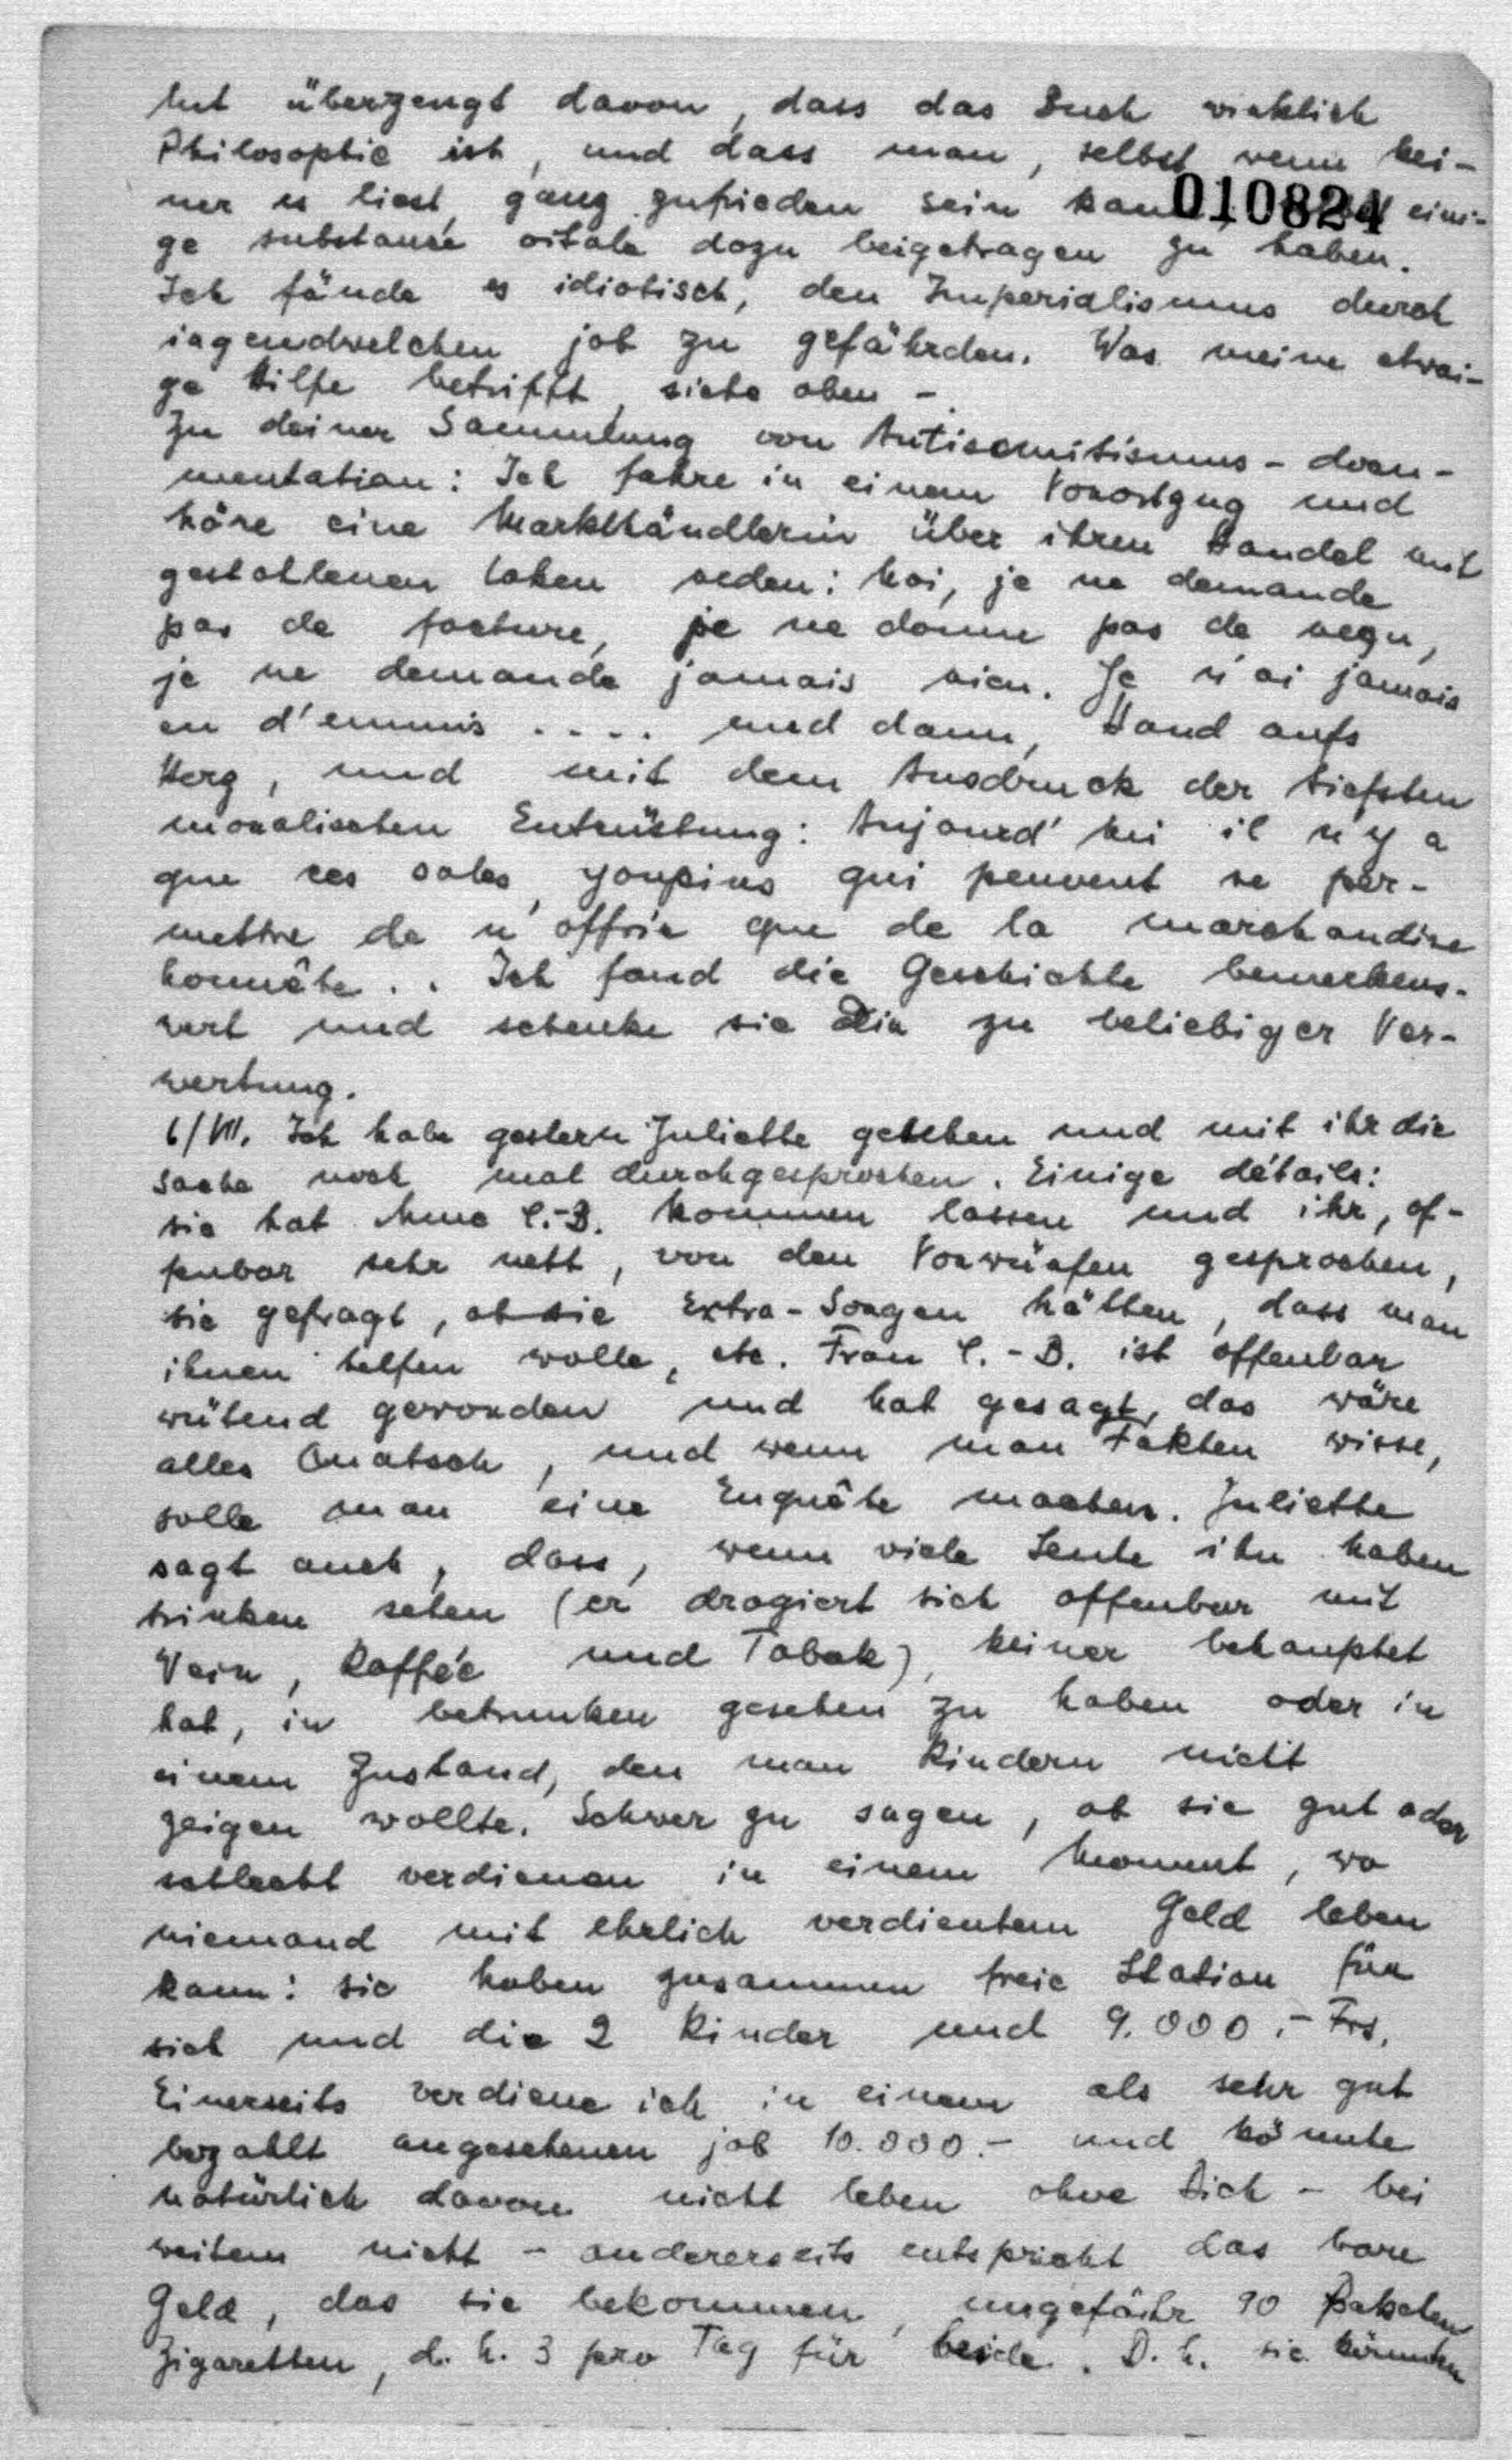 lut überzeugt davon, dass das Buch wirklich
Philosophie ist, und dass man, selbst wenn kei-
ner es liest, ganz zufrieden sein kann, eini-
010824
ge substance vitale dazu beigetragen zu haben.
Ich fände es idiotisch, den Imperialismus durch
irgendwelchen job zu gefährden. Was meine etwai-
ge Hilfe betrifft, siehe oben -
Zu deiner Sammlung von Antisemitismus-doku-
mentation: Ich fahre in einem Vorortzug und
höre eine Markthändlerin über ihren Handel mit
gestohlenen Laken reden: Moi, je ne demande
pas de facture, je ne donne pas de reçu,
je ne demande jamais rien. Je n'ai jamais
eu d'ennuis .... und dann, Hand aufs
Herz, und mit dem Ausdruck der tiefsten
moralischen Entrüstung: Aujourd'hui il n'y a
que ces sales youpins qui peuvent se per-
mettre de n'offrir que de la marchandise
honnête.. Ich fand die Geschichte bemerkens-
wert und schenke sie Dir zu beliebiger Ver-
wertung.
6/VII. Ich habe gestern Juliette gesehen und mit ihr die
Sache noch mal durchgesprochen. Einige détails:
sie hat Mme C.-B. kommen lassen und ihr, of-
fenbar sehr nett, von den Vorwürfen gesprochen,
sie gefragt, ob sie Extra-Sorgen hätten, dass man
ihnen helfen wolle, etc. Frau C.-B. ist offenbar
wütend geworden und hat gesagt, das wäre
alles Quatsch, und wenn man Fakten wisse,
solle man eine Enquête machen. Juliette
sagt auch, dass, wenn viele Leute ihn haben
trinken sehen (er drogiert sich offenbar mit
Wein, Kaffée und Tabak), keiner behauptet
hat, in betrunken gesehen zu haben oder in
einem Zustand, den man Kindern nicht
zeigen wollte. Schwer zu sagen, ob sie gut oder
schlecht verdienen in einem Moment, wo
niemand mit ehrlich verdientem Geld leben
kann: sie haben zusammen freie Station für
sich und die 2 Kinder und 9.000.- Frs.
Einerseits verdiene ich in einem als sehr gut
bezahlt angesehenen job 10.000.- und könnte
natürlich davon nicht leben ohne Dich - bei
weitem nicht - andererseits entspricht das bare
Geld, das sie bekommen, ungefähr 90 Paketen
Zigaretten, d. h. 3 pro Tag für beide. D. h. sie könnten